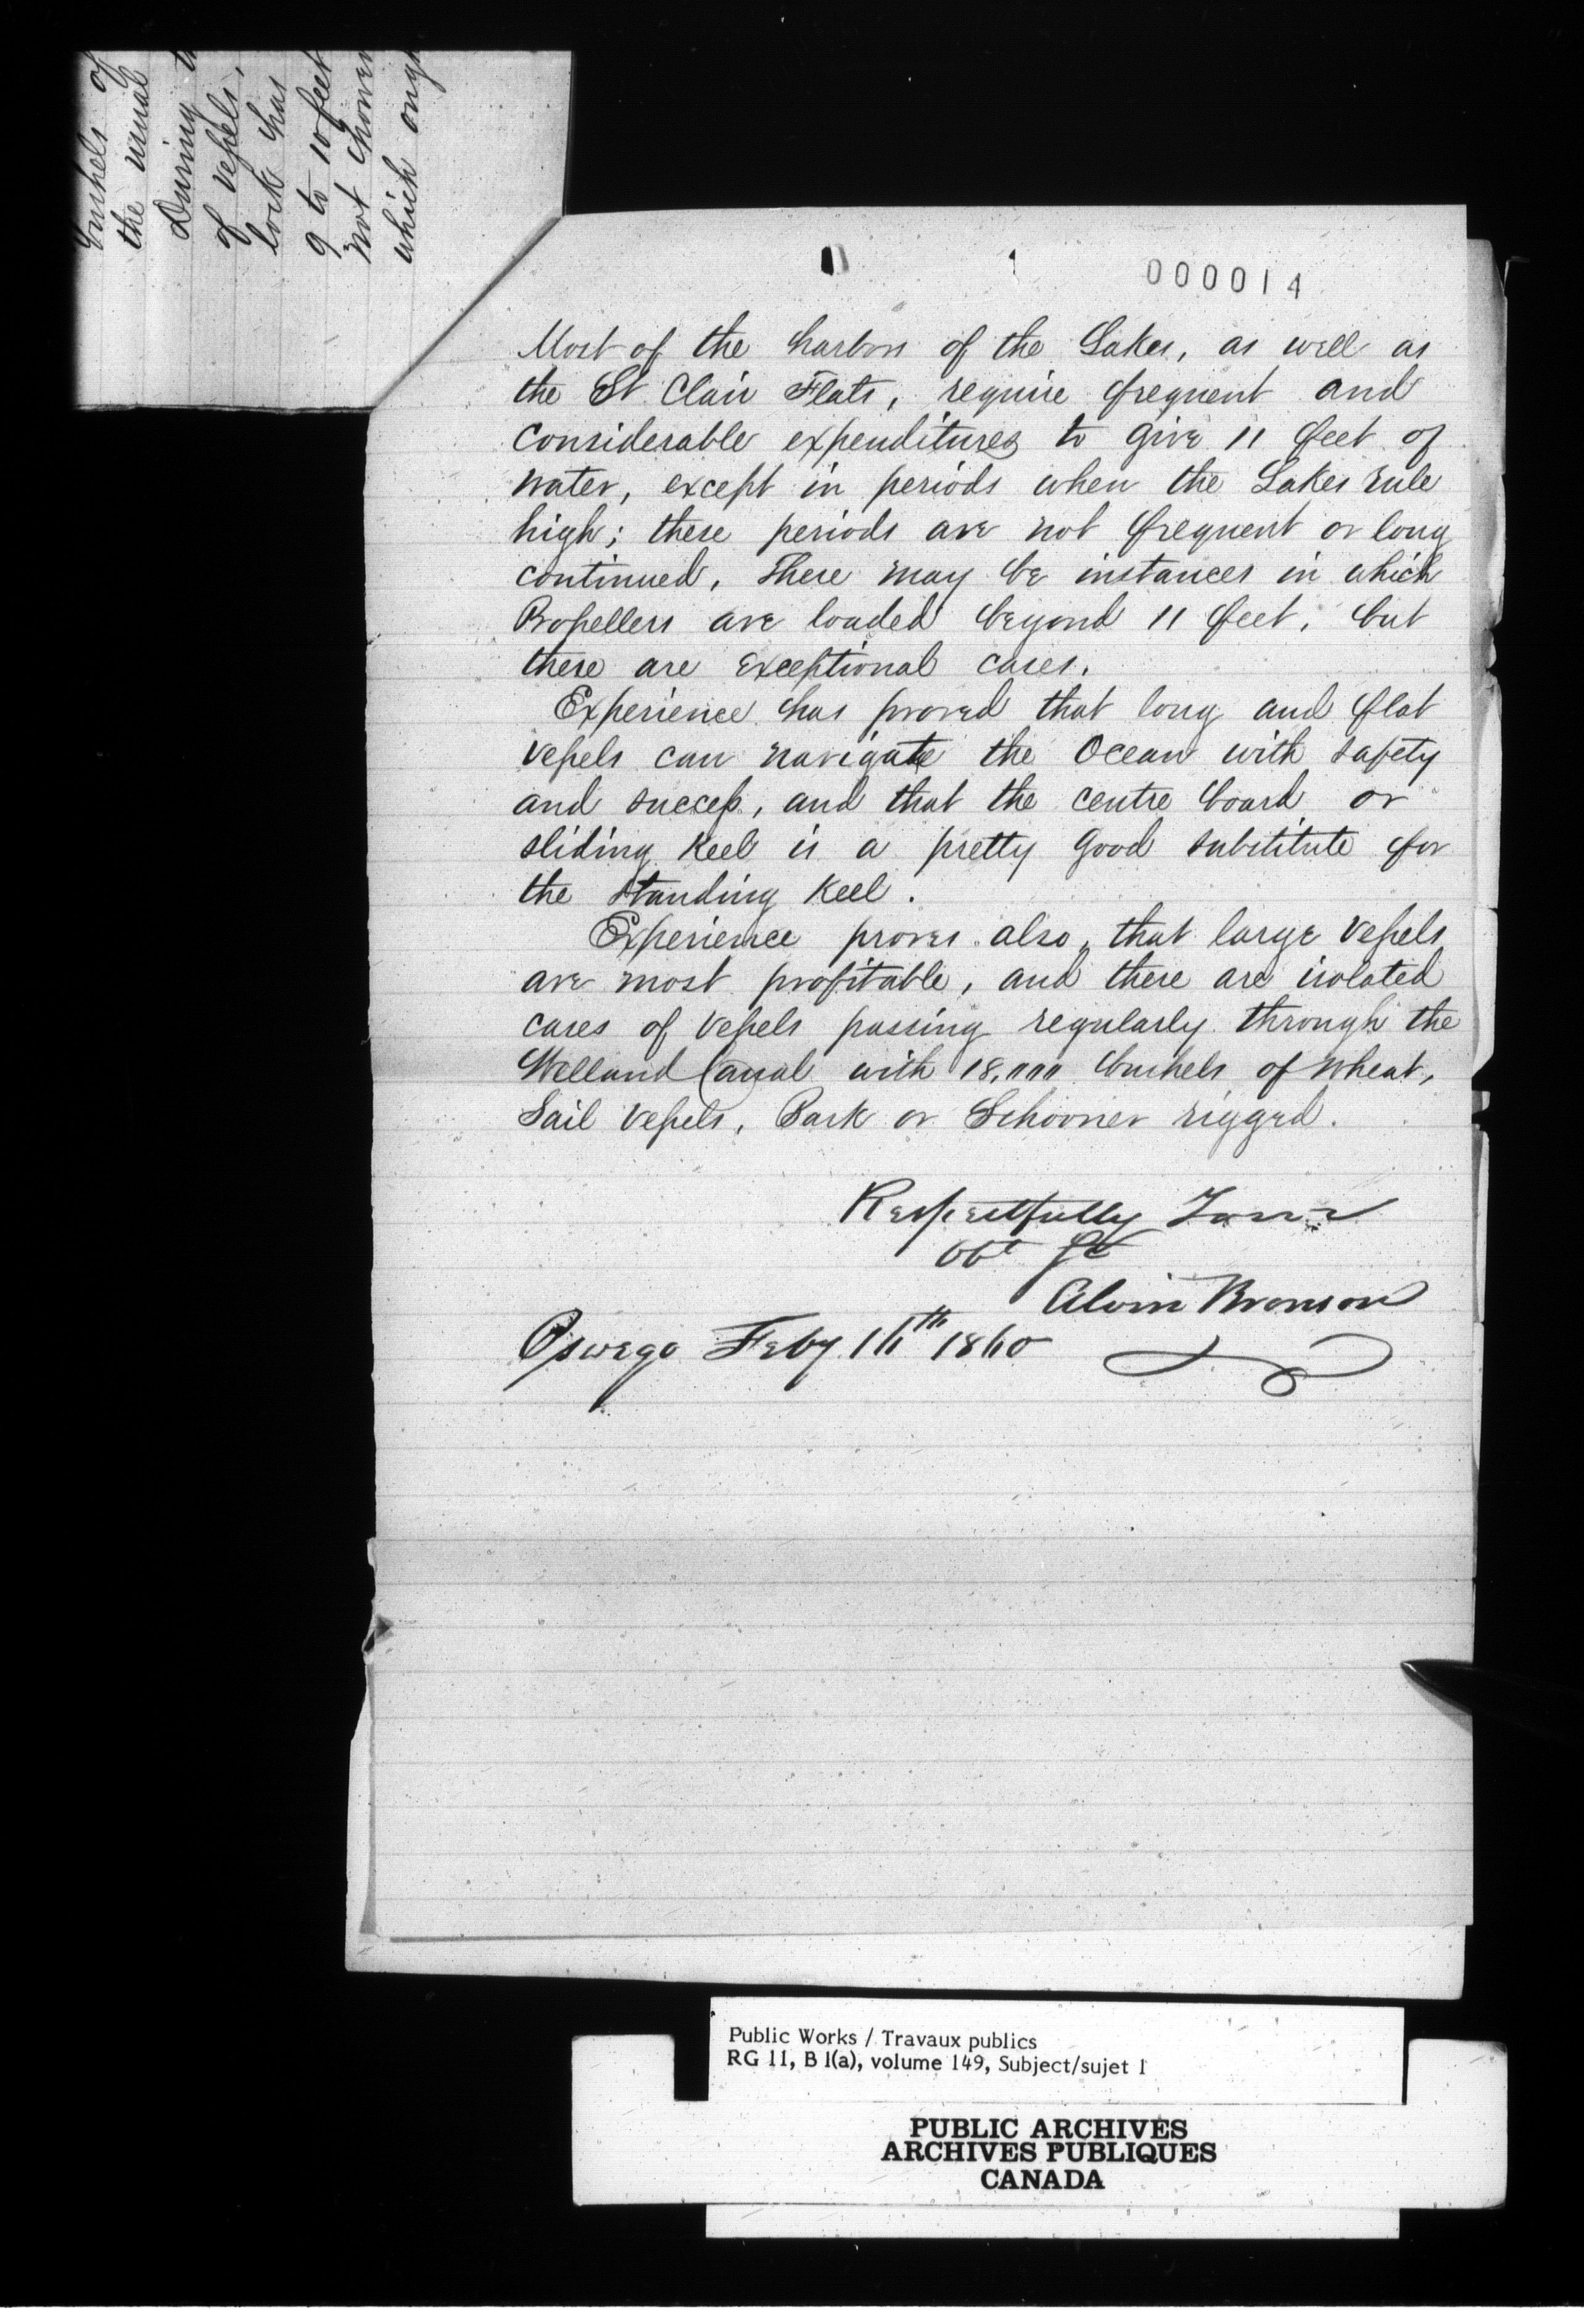 bushels of
the usual
During th
of vessels,
lock has
9 to 10 feet
not
which ough
000014
Most of the harbors of the Lakes, as well as
the St Clair Flats, require frequent and
considerable expenditures to give 11 feet of
water, except in periods when the Lakes rule
high; these periods are not frequent or long
continued. There may be instances in which
Propellers are loaded beyond 11 feet, but
these are exceptional cases.
Experience has proved that long and flat
vessels can navigate the Ocean with safety
and success, and that the centre board or
sliding Keel is a pretty good substitute for
the standing Keel.
Experience proves also, that large vessels
are most profitable, and there are isolated
cases of vessels passing regularly through the
Welland Canal with 18,000 bushels of wheat,
Sail vessels, Bark or Schooner rigged.
Respectfully Yours
Obt St
Alvin Bronson
Oswego Feby 16th 1860
Public Works / Travaux publics
RG 11, B 1(a), volume 149, Subject/sujet 1
PUBLIC ARCHIVES
ARCHIVES PUBLIQUES
CANADA